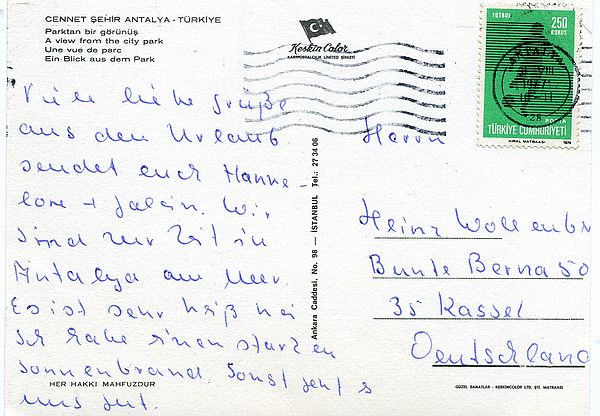 CENNET ŞEHİR ANTALYA - TÜRKİYE
Parktan bir görünüş
A view from the city park
Une vue de parc
Ein Blick aus dem Park
Keskin Color
KARTPOSTALCILIK LIMITED ŞİRKETİ
FUTBOL
250
KURUŞ
POSTA
TÜRKİYE CUMHURİYETİ
KIRAL MATBAASI 1974
Viele liebe Grüße
aus den Urlaub
sendet euch Hanne-
lore +
Wir
sind zur Zeit in
Antalya am Meer.
Es ist sehr heiß
ich habe einen starken
sonnenbrand. Sonst geht s
uns gut.
HER HAKKI MAHFUZDUR
Ankara Caddesi, No. 98 — İSTANBUL Tel.: 27 34 06
Herrn
Heinz
Bunte Berna 50
35 Kassel
Deutschland
GÜZEL SANATLAR - KESKİNCOLOR LTD. ŞTİ. MATBAASI